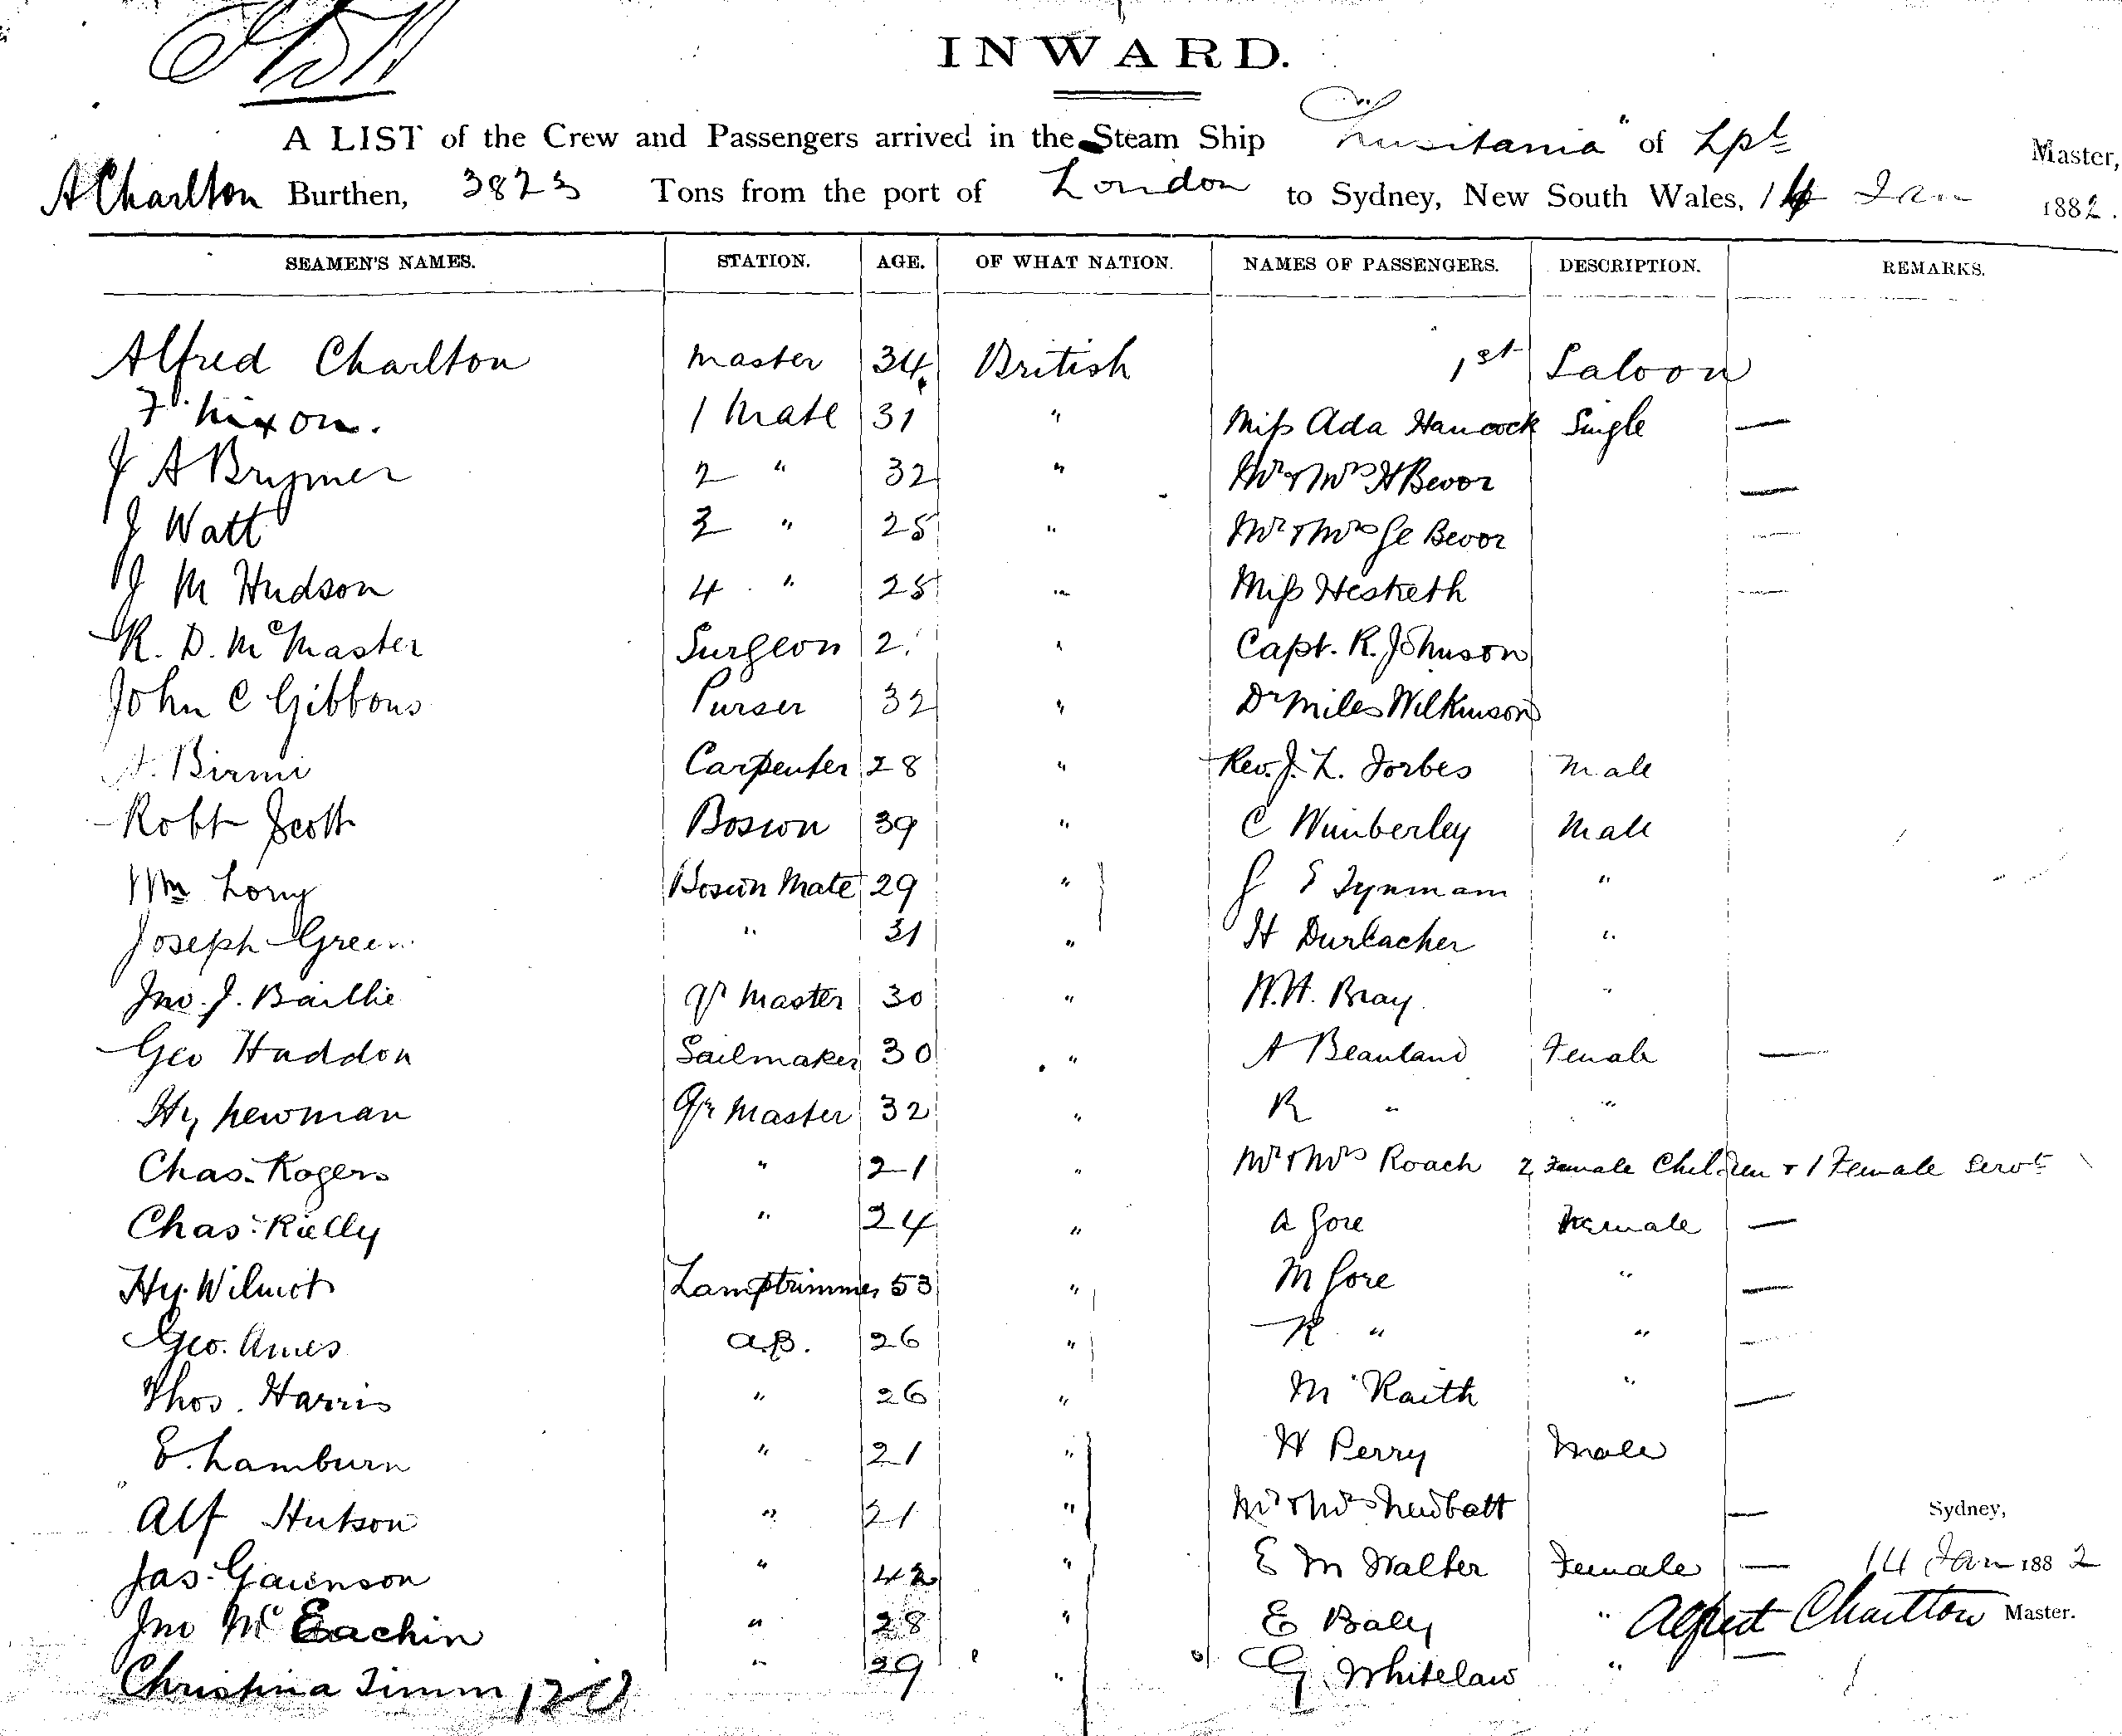 INWARD.
A LIST of the Crew and Passengers arrived in the Steam Ship "Lusitania" of Lpl Master,
A Charlton Burthen, 3823 Tons from the port of London to Sydney, New South Wales, 14 Jan 1882.
SEAMEN'S NAMES. STATION. AGE. OF WHAT NATION. NAMES OF PASSENGERS. DESCRIPTION. REMARKS.
Alfred Charlton Master 34 British 1st Saloon
F. Nixon. 1 Mate 31 " Miss Ada Hancock Single —
J A Brymer 2 " 32 " Mr & Mrs H Bevor —
J Watt 3 " 25 " Mr & Mrs Ge Bevor —
J M Hudson 4 " 25 " Miss Hesketh —
R. D. McMaster Surgeon 2 " Capt. R. Johnson
John C Gibbons Purser 32 " Dr Miles Wilkinson
Birmi Carpenter 28 " Rev. J. L. Forbes Male
Robt Scott Boswn 39 " C Wimberley Male
Wm Lory Boswn Mate 29 " J E Tynmam "
Joseph Green " 31 " H Durlacher "
Jno. J. Baillie Qr Master 30 " W.H. Bray "
Geo Haddon Sailmaker 30 " A Beauland Female —
Hy Newman Qr Master 32 " R " "
Chas. Rogers " 21 " Mr & Mrs Roach 2 Female Children & 1 Female Servt
Chas. Rielly " 24 " A Gore Female —
Hy. Wilmot Lamptrimmer 53 " M Gore " —
Geo. Ames A.B. 26 " R " " —
Thos. Harris " 26 " M Raith " —
E. Lamburn " 21 " H Perry Male
Alf Hutson " 21 " Mr & Mrs Newbatt — Sydney,
Jas. " 42 " E M Walter Female — 14 Jan 1882
Jno McEachin " 28 " E Baly " Alfred Charlton Master.
Christina Timm 120 " 29 " G Whitelaw "